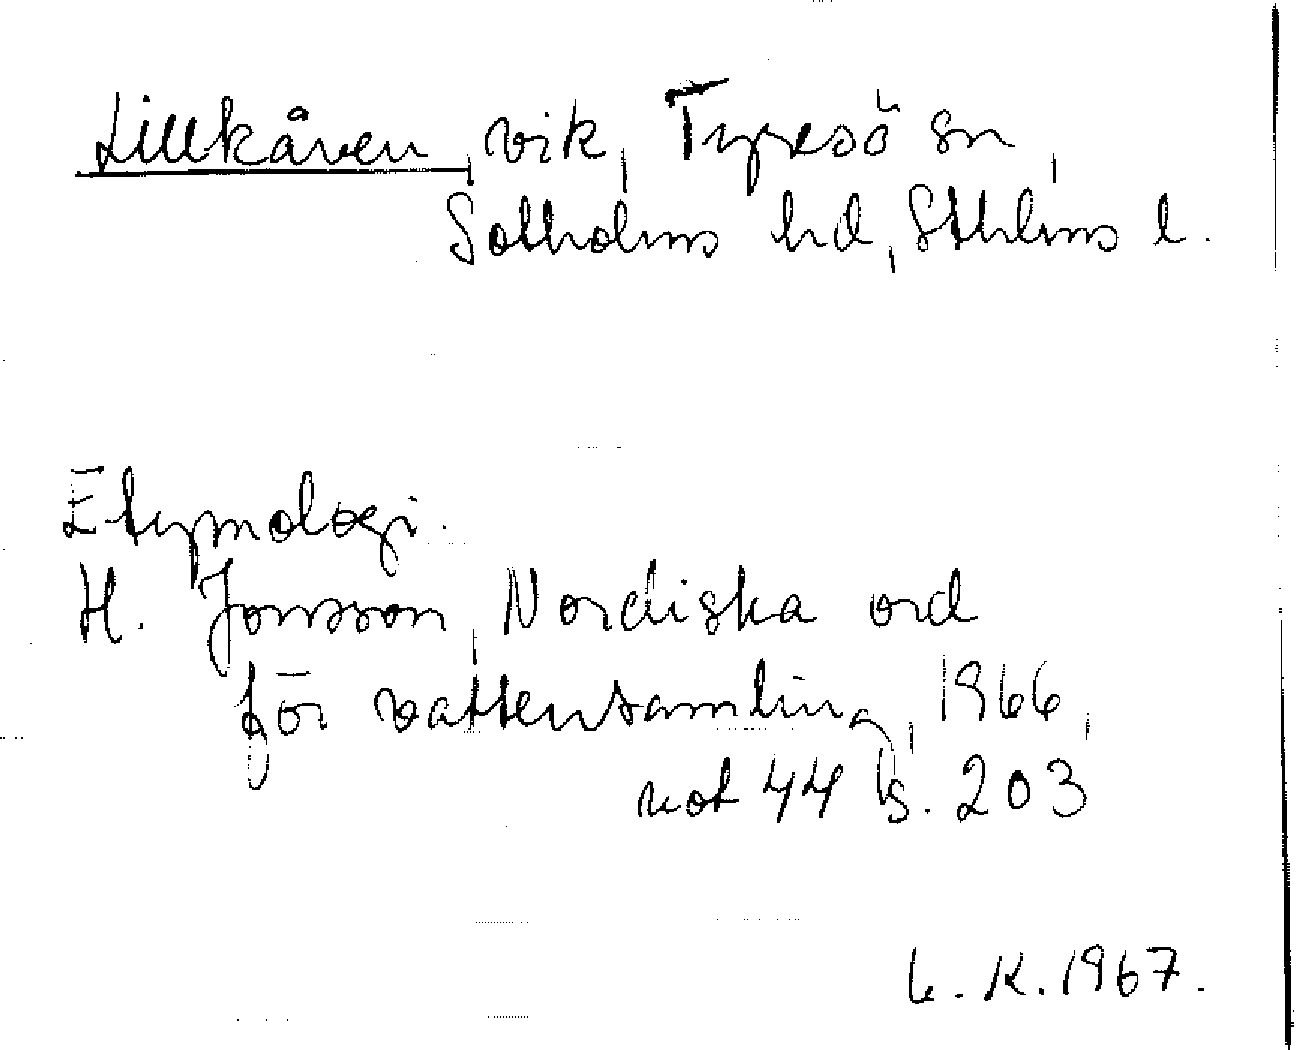 Lillkåven, vik, Tyresö sn,
Sotholms hd, Sthlms l.
Etymologi.
H. Jonsson, Nordiska ord
för vattensamling, 1966,
not 44 s. 203
K. 1967.